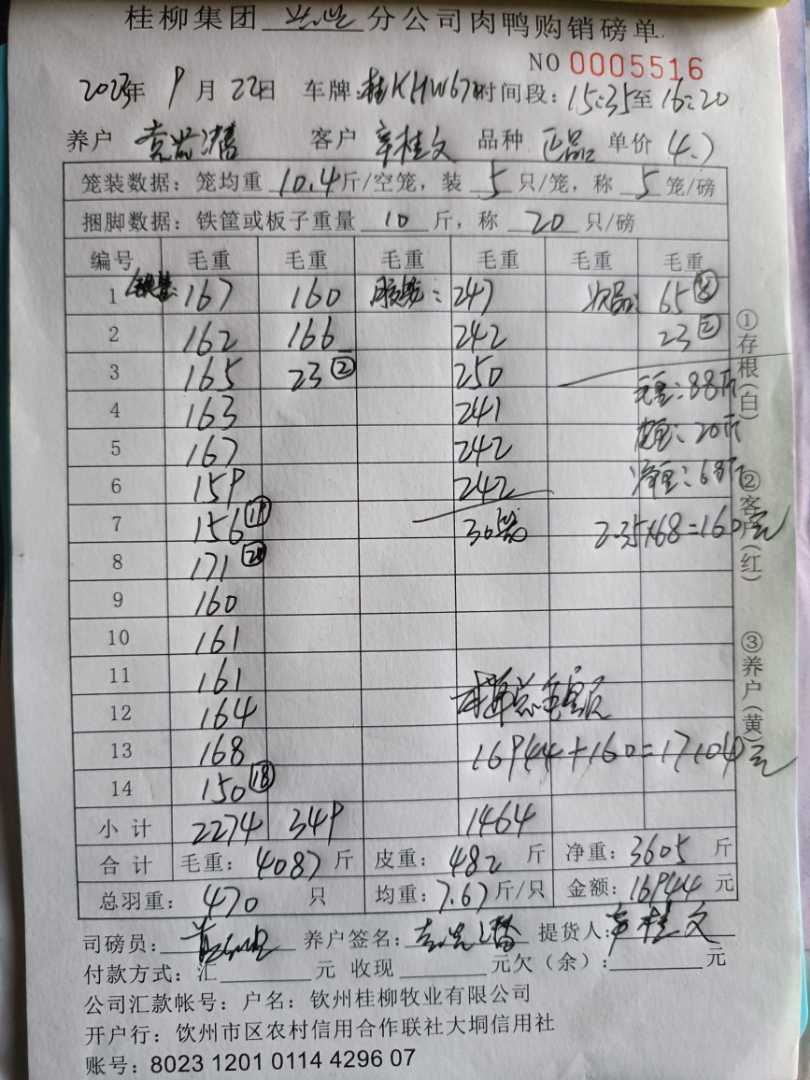 桂柳集团 分公司肉鸭购销磅单
NO 0005516
2023年 9月 22日 车牌:桂KHW67 时间段:15:35至16:20
养户 客户 辛桂文 品种 正品 单价 4.7
笼装数据:笼均重 10.4斤/空笼,装 5 只/笼,称 5 笼/磅
捆脚数据:铁筐或板子重量 10 斤,称 20 只/磅
编号 毛重 毛重 毛重 毛重 毛重 毛重
1 167 160 247 次品: 65
2 162 166 242 23 ②
3 165 23 ② 250 毛重:88斤
4 163 241 皮重:20斤
5 167 242 净重:68斤
6 159 242
7 156 ⑲ 30笼 2.35×68=160元
8 171 ⑳
9 160
10 161
11 161
12 164
13 168 16944+160=17104元
14 150 ⑱
小计 2274 349 1464
合计 毛重:4087斤 皮重:482斤 净重:3605斤
总羽重:470 只 均重:7.67斤/只 金额:16944元
司磅员: 养户签名: 提货人:辛桂文
付款方式:汇 元 收现 元欠(余): 元
公司汇款帐号:户名:钦州桂柳牧业有限公司
开户行:饮州市区农村信用合作联社大垌信用社
账号:8023 1201 0114 4296 07
①存根(白) ②客户(红) ③养户(黄)